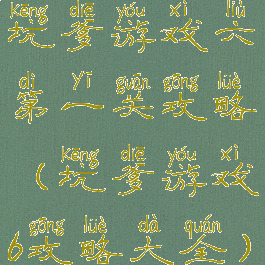 kēng diē yóu xì liù
坑爹游戏六
dì yī guān gōng lüè
第一关攻略
kēng diē yóu xì
(坑爹游戏
gōng lüè dà quán
6攻略大全)